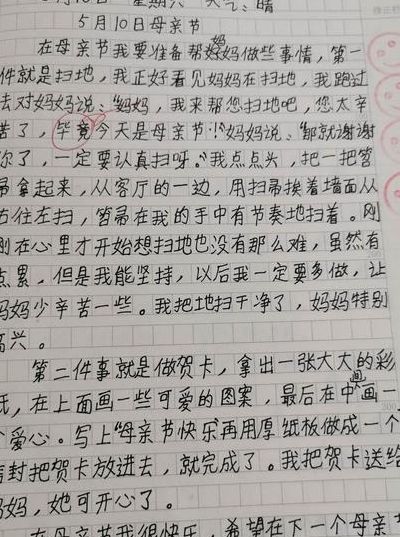 星期六 天气：晴
5月10日母亲节
在母亲节我要准备帮妈妈做些事情，第一
件就是扫地，我正好看见妈妈在扫地，我跑过
去对妈妈说：“妈妈，我来帮您扫地吧，您太辛
苦了，毕竟今天是母亲节！”妈妈说：“那就谢谢
你了，一定要认真扫呀。”我点点头，把一把笤
帚拿起来，从客厅的一边，用扫帚挨着墙面从
右往左扫，笤帚在我的手中有节奏地扫着。刚
刚在心里才开始想扫地也没有那么难，虽然有
点累，但是我能坚持，以后我一定要多做，让
妈妈少辛苦一些。我把地扫干净了，妈妈特别
高兴。
第二件事就是做贺卡，拿出一张大大的彩
纸，在上面画一些可爱的图案，最后在中画一
个爱心。写上“母亲节快乐”再用厚纸板做成一个
信封把贺卡放进去，就完成了。我把贺卡送给
妈妈，她可开心了。
在母亲节我很快乐，希望在下一个母亲节